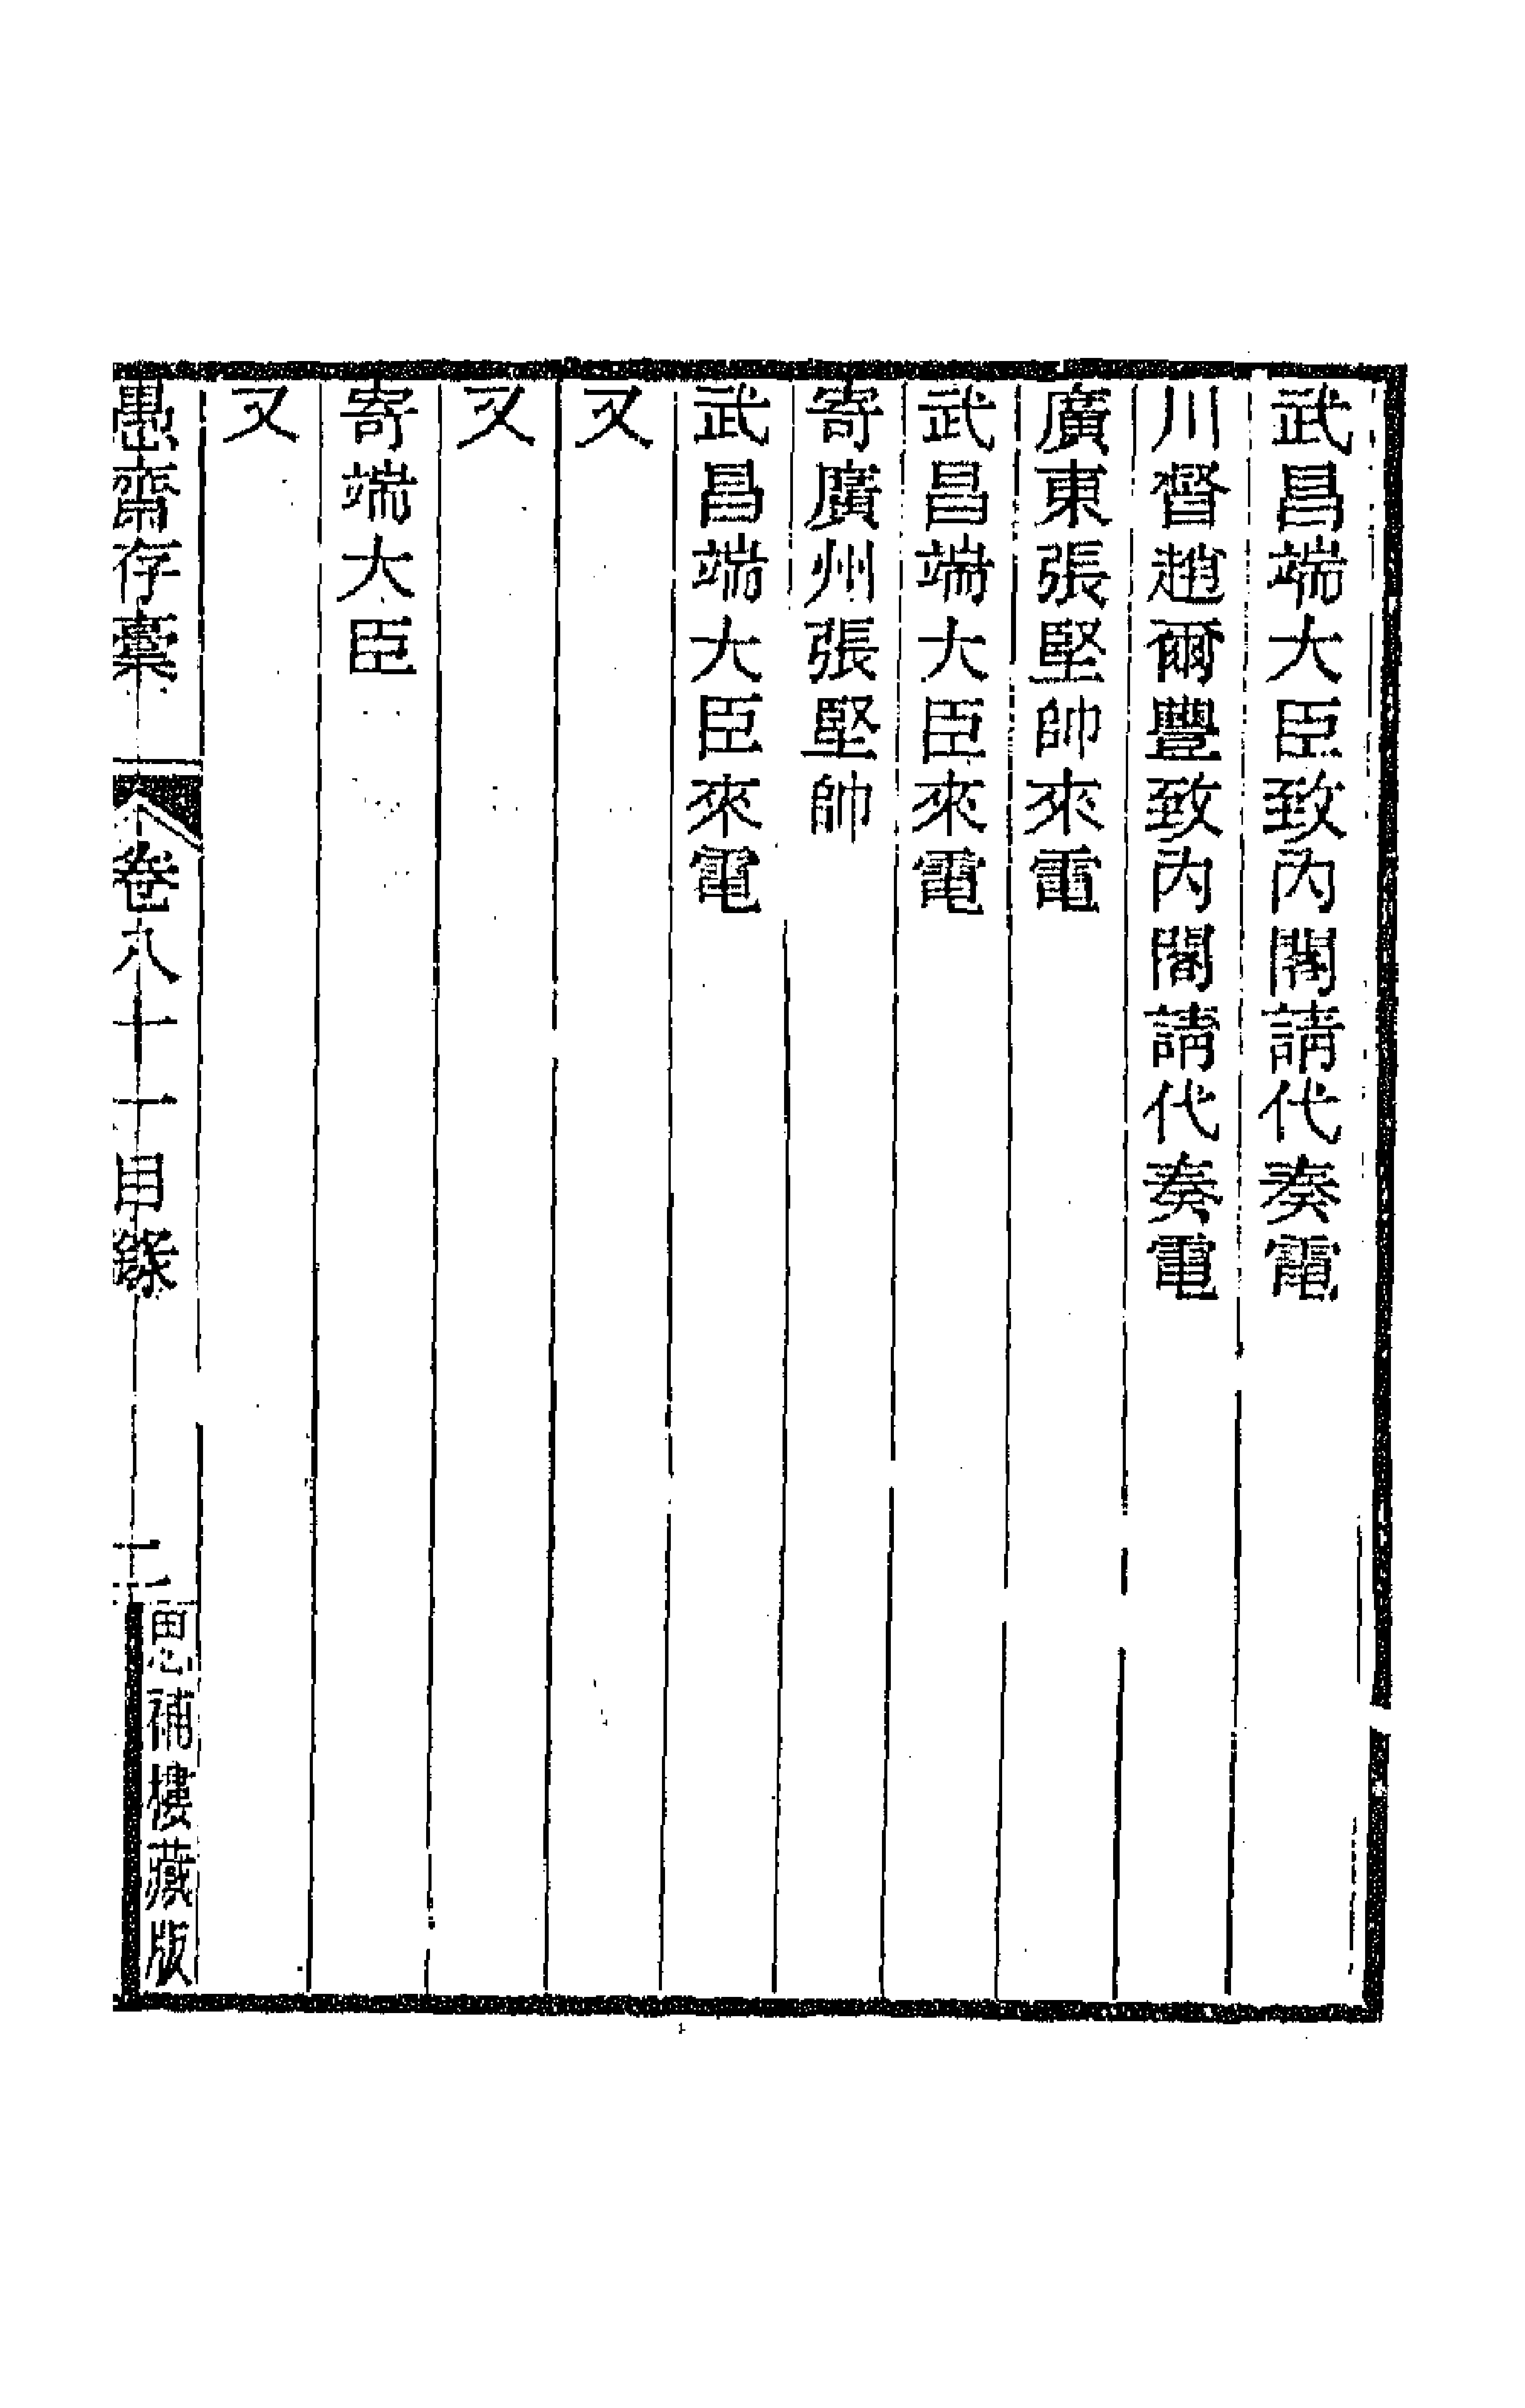 武昌端大臣致內閣請代奏電
川督趙爾豐致內閣請代奏電
廣東張堅帥來電
武昌端大臣來電
寄廣州張堅帥
武昌端大臣來電
又
又
寄端大臣
又
愚齋存稾
卷八十一目錄
二
思補樓藏版